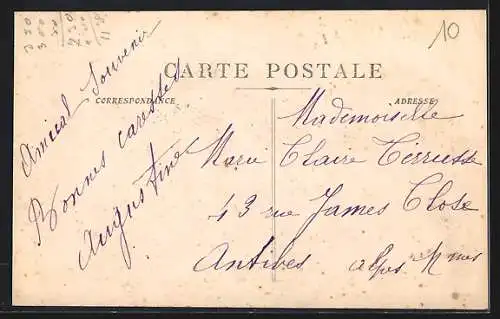 10
CARTE POSTALE
CORRESPONDANCE
ADRESSE
Amical Souvenir
Bonnes caresses
Augustine
Mademoiselle
Marie Claire Terrusse
43 rue James Close
Antibes alpes Mmes